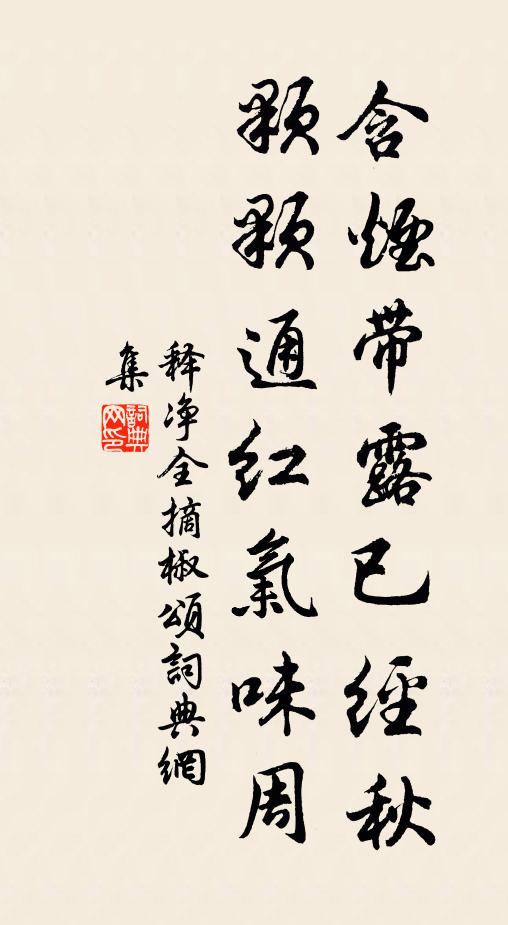 含煙带露已經秋
顆顆通紅氣味周
释净全摘椒頌詞典網
集
詞典
网印